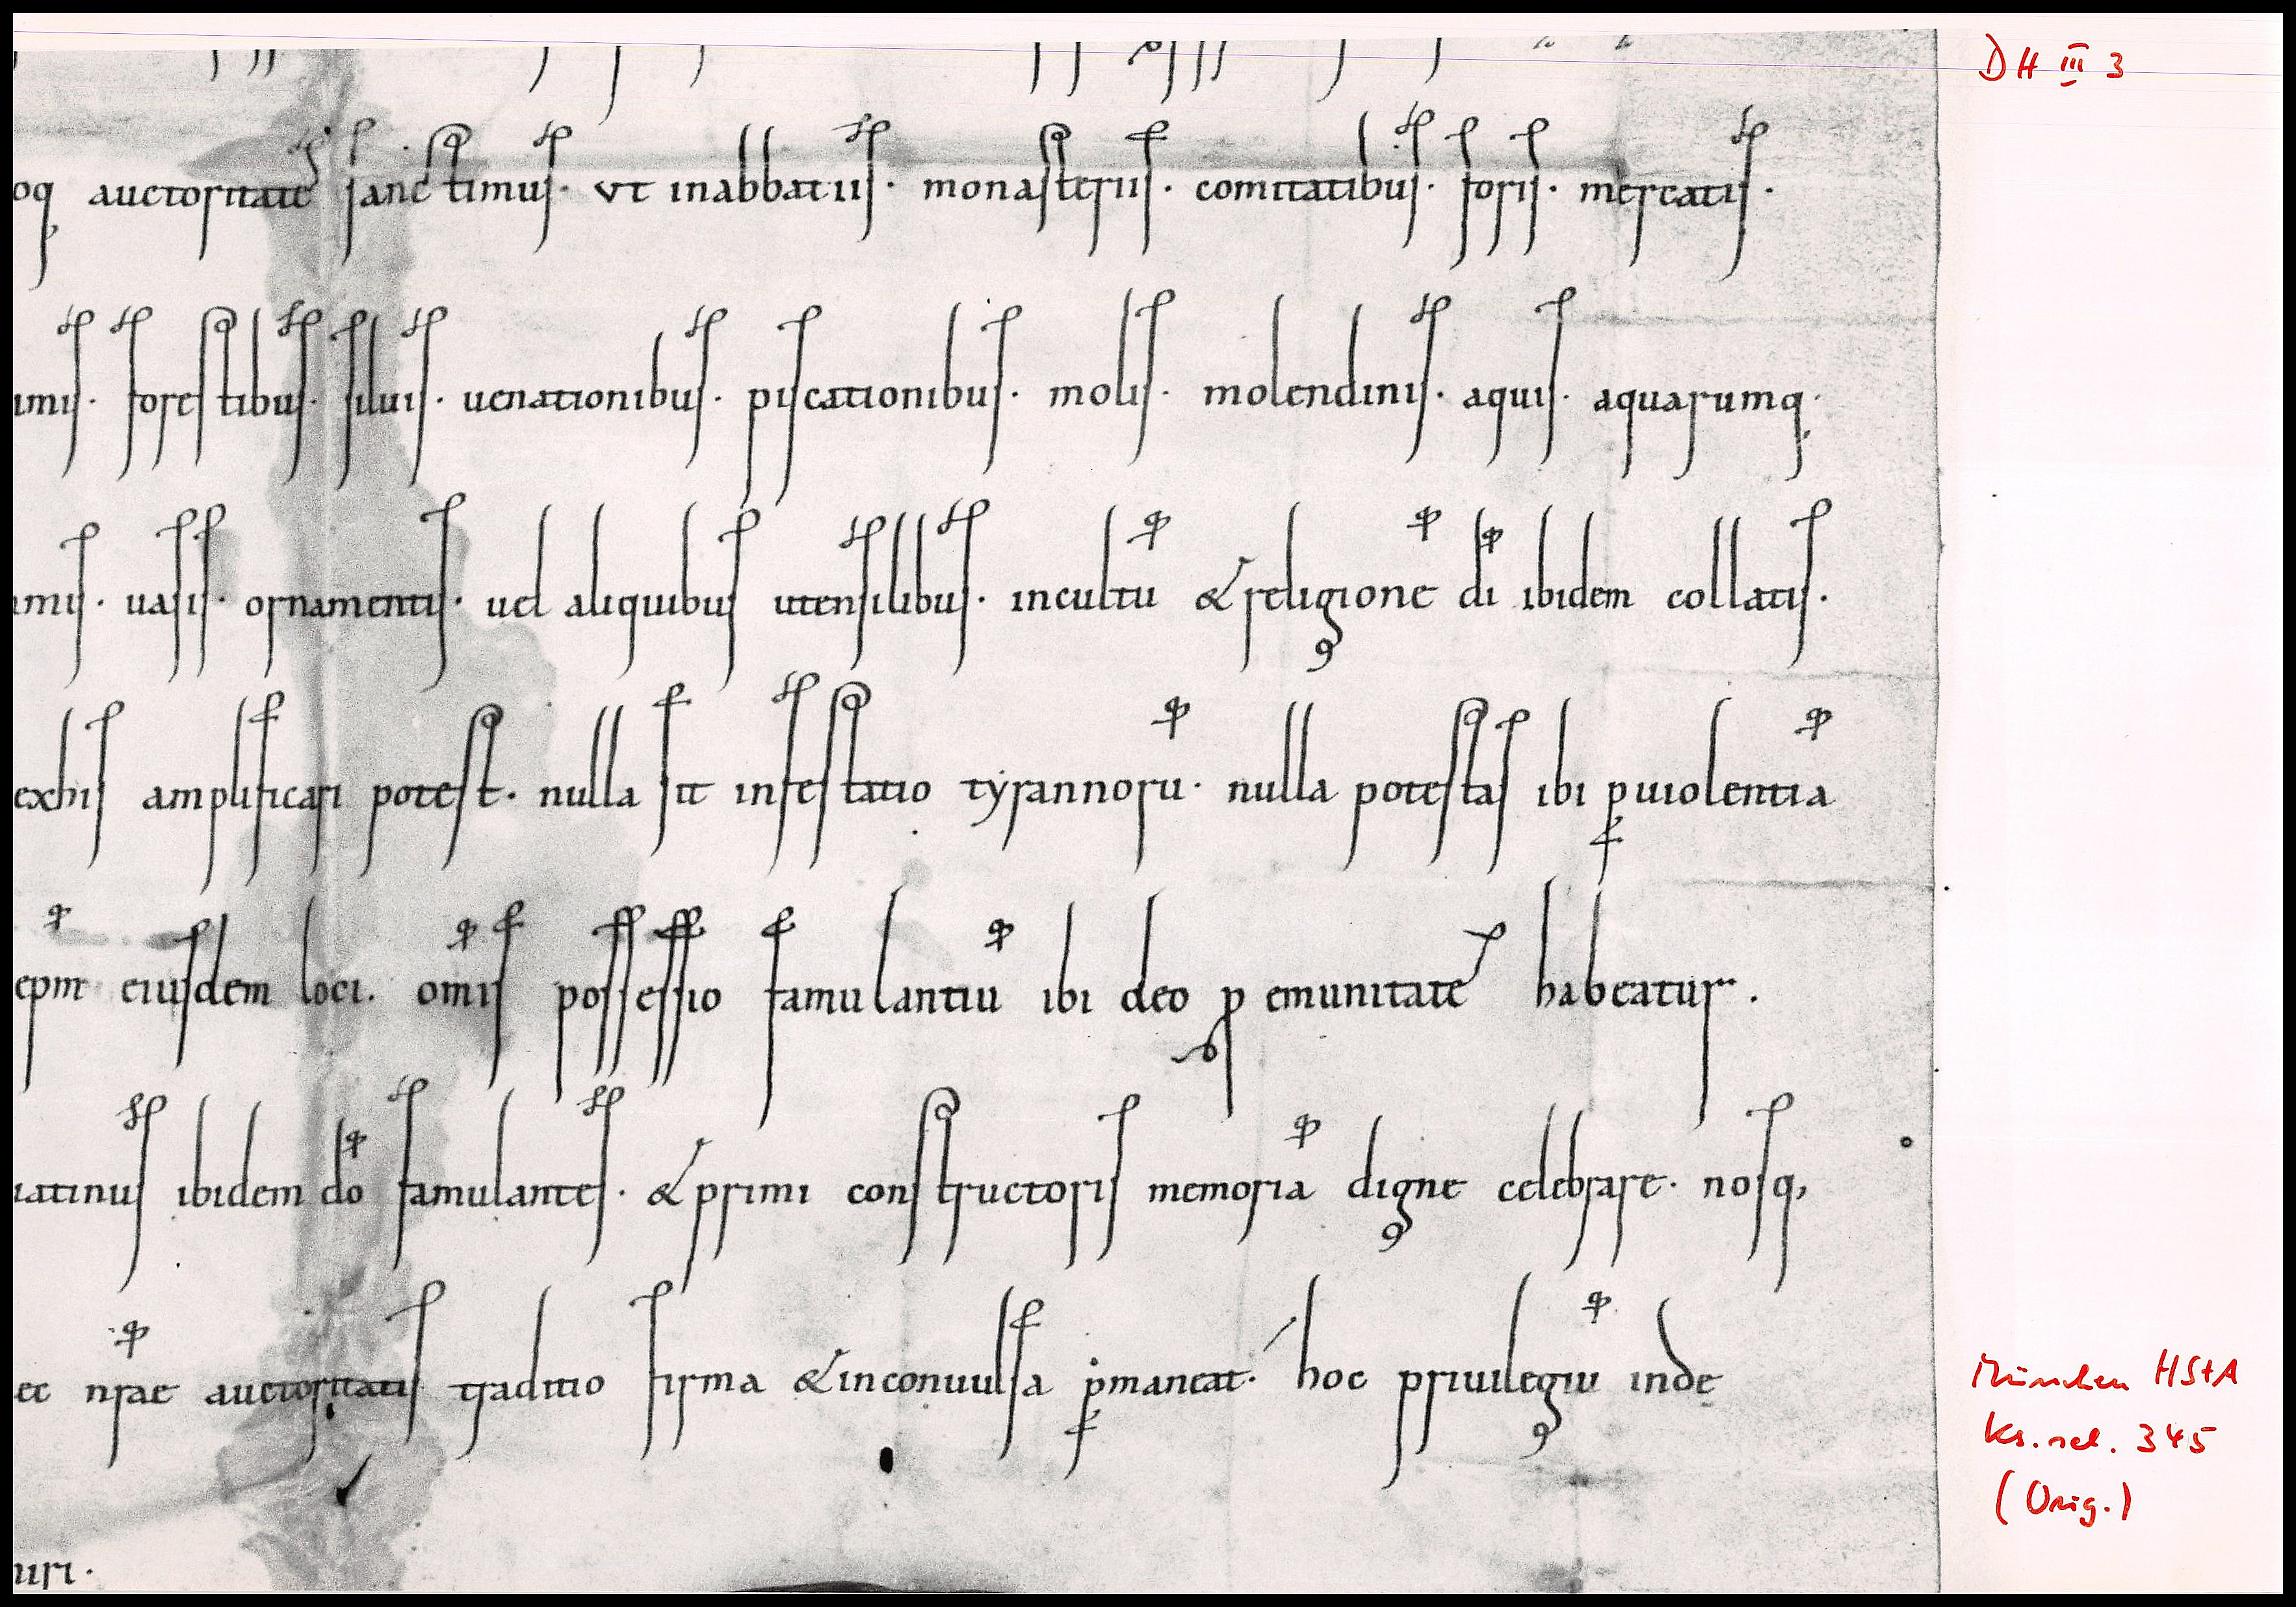 DH III 3
oq auctoritate sanctimus. vt inabbatiis. monasteriis. comitatibus. foris. mercatis.
imis. forestibus. siluis. uenationibus. piscationibus. molis. molendinis. aquis. aquarumq.
imis. uasis. ornamentis. uel aliquibus utensilibus. incultū & religione dī ibidem collatis.
exhis amplificari potest. nulla sit infestatio tyrannorū. nulla potestas ibi p uiolentia
epm eiusdem loci. omīs possessio famulantiū ibi deo p emunitate habeatur.
iatinus ibidem dō famulantes. & primi constructoris memoriā digne celebrare. nosq,
ec nrae auctoritatis traditio firma & inconuulsa pmaneat. hoc priuilegiū inde
uiri.
München HStA
Ks. sel. 345
(Orig.)